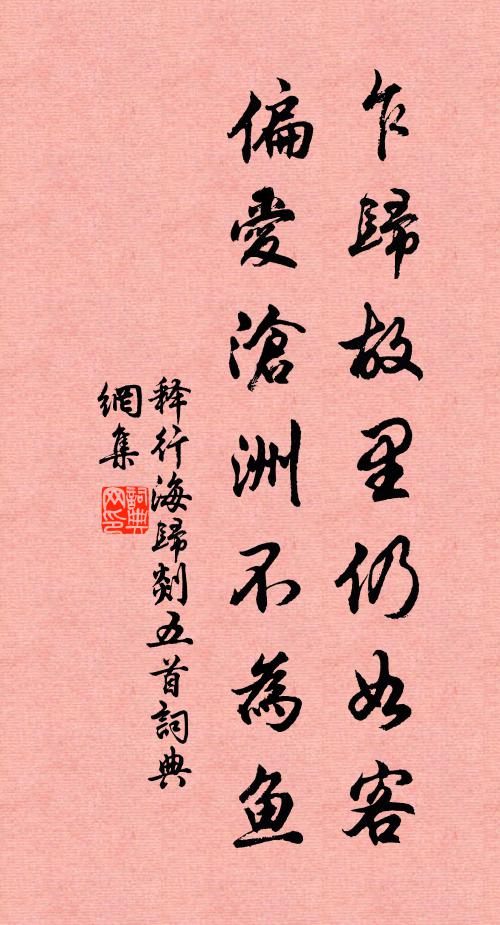 乍歸故里仍如客
偏愛滄洲不為鱼
释行海歸剡五首詞典
網集
詞典
网印